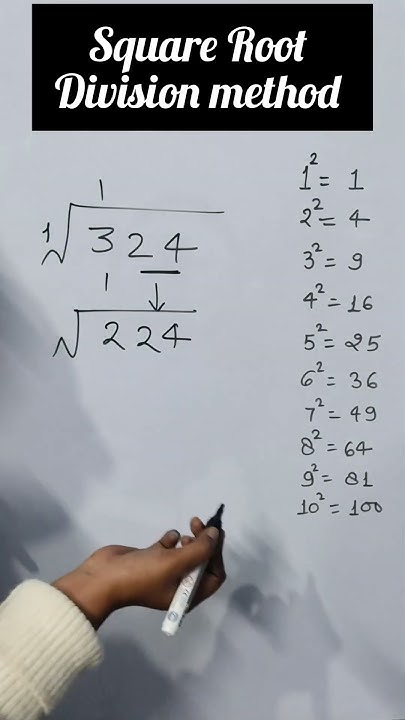 Square Root
Division method
1
1√324
1
√224
1² = 1
2² = 4
3² = 9
4² = 16
5² = 25
6² = 36
7² = 49
8² = 64
9² = 81
10² = 100